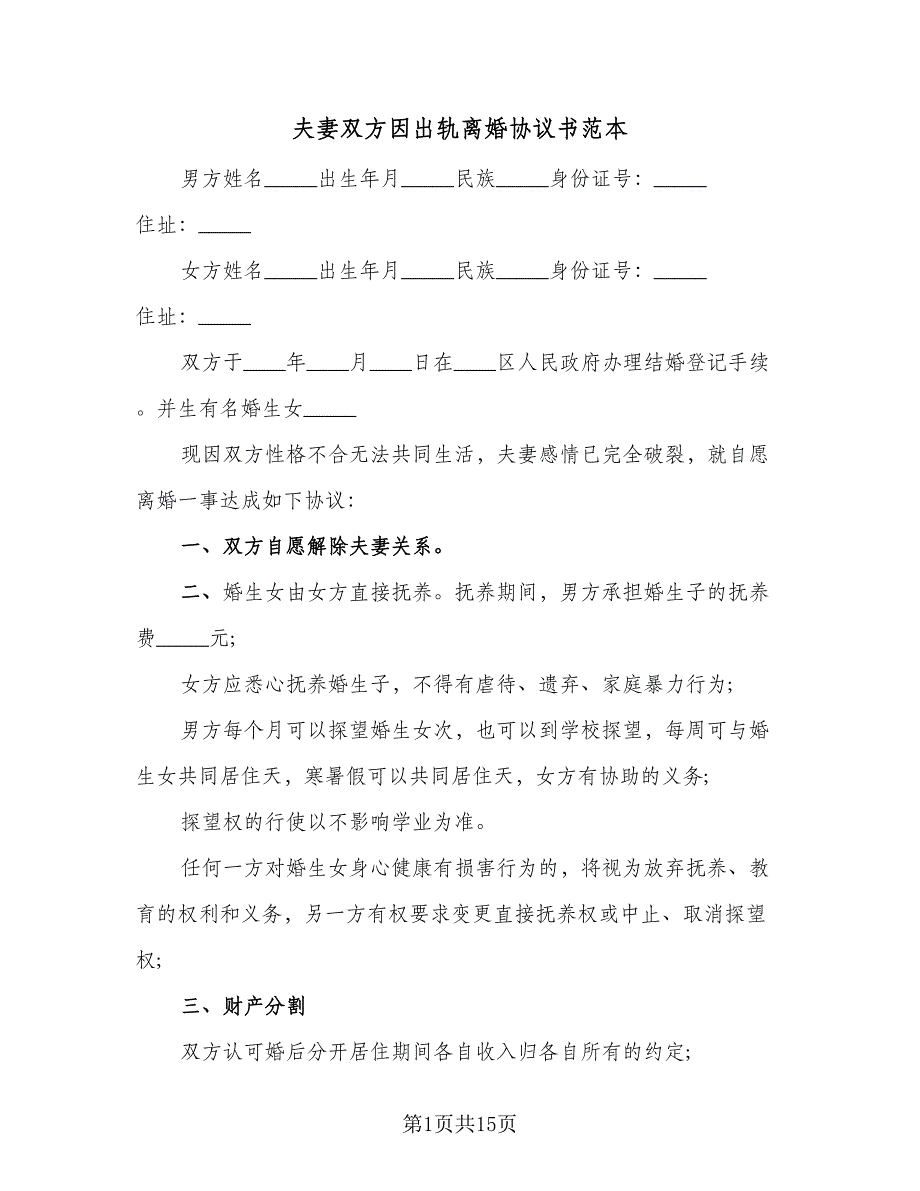 夫妻双方因出轨离婚协议书范本
男方姓名_____出生年月_____民族_____身份证号：_____
住址：_____
女方姓名_____出生年月_____民族_____身份证号：_____
住址：_____
双方于____年____月____日在____区人民政府办理结婚登记手续
。并生有名婚生女_____
现因双方性格不合无法共同生活，夫妻感情已完全破裂，就自愿
离婚一事达成如下协议：
一、双方自愿解除夫妻关系。
二、婚生女由女方直接抚养。抚养期间，男方承担婚生子的抚养
费_____元;
女方应悉心抚养婚生子，不得有虐待、遗弃、家庭暴力行为;
男方每个月可以探望婚生女次，也可以到学校探望，每周可与婚
生女共同居住天，寒暑假可以共同居住天，女方有协助的义务;
探望权的行使以不影响学业为准。
任何一方对婚生女身心健康有损害行为的，将视为放弃抚养、教
育的权利和义务，另一方有权要求变更直接抚养权或中止、取消探望
权;
三、财产分割
双方认可婚后分开居住期间各自收入归各自所有的约定;
第1页共15页